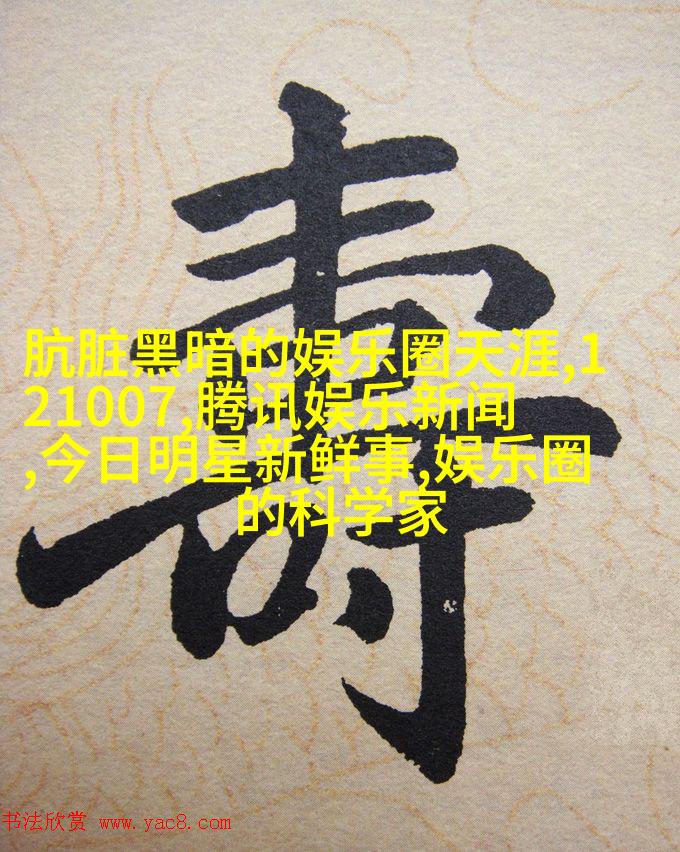 壽
肮脏黑暗的娱乐圈天涯,1
21007,腾讯娱乐新闻
,今日明星新鲜事,娱乐圈
的科学家
书法欣赏 www.yac8.com